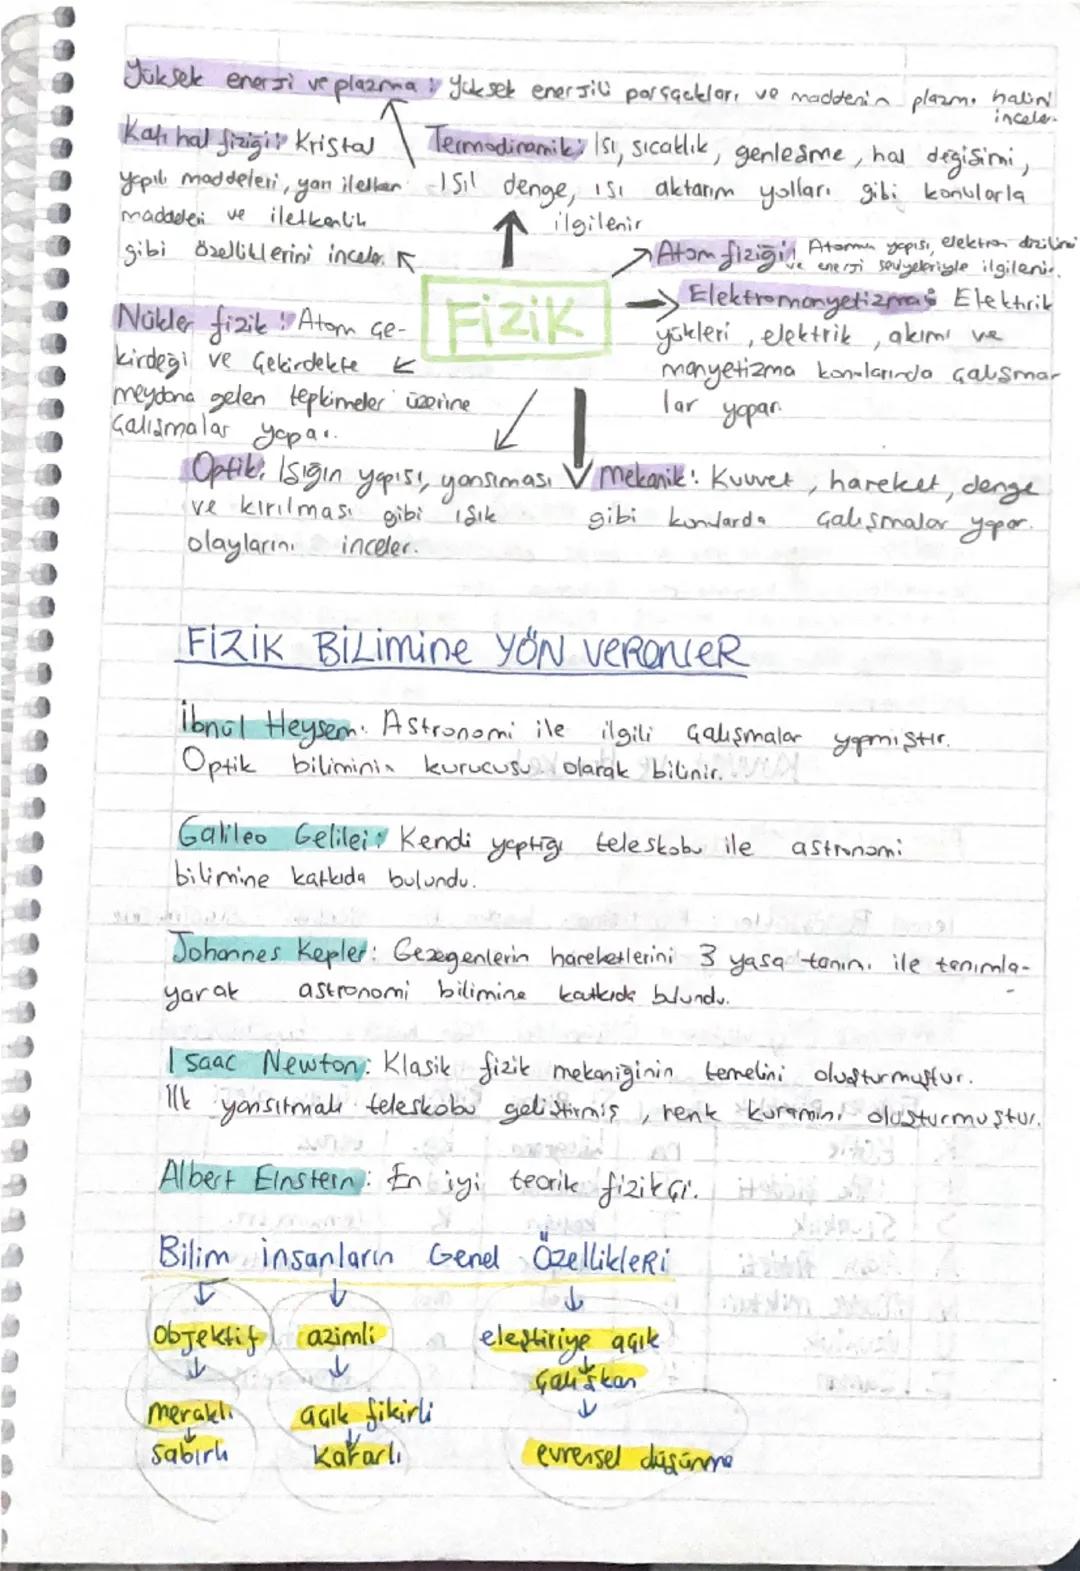 Yüksek enerji ve plazma : Yüksek enerjili parçacıkları ve maddenin plazma halini
inceler.
Katı hal fiziği: Kristal
yapılı maddeleri, yarı iletken
maddeleri ve iletkenlik
gibi özelliklerini inceler.
Termodinamik: Isı, sıcaklık, genleşme, hal değişimi,
ısıl denge, ısı aktarım yolları gibi konularla
ilgilenir
Atom fiziği: Atomun yapısı, elektron dizilimi
ve enerji seviyeleriyle ilgilenir.
FİZİK
Elektromanyetizma: Elektrik
yükleri, elektrik, akımı ve
manyetizma konularında çalışma
lar yapar.
Nükler fizik : Atom çe-
kirdeği ve çekirdekte
meydana gelen tepkimeler üzerine
Çalışmalar yapar.
Optik: Işığın yapısı, yansıması
ve kırılması gibi ışık
olaylarını inceler.
Mekanik: Kuvvet, hareket, denge
gibi konularda çalışmalar yapar.
FİZİK BİLİMİNE YÖN VERENLER
İbnül Heysem: Astronomi ile ilgili çalışmalar yapmıştır.
Optik biliminin kurucusu olarak bilinir.
Galileo Gelilei: Kendi yaptığı teleskobu ile astronomi
bilimine katkıda bulundu.
Johannes Kepler: Gezegenlerin hareketlerini 3 yasa tanımı ile tanımla-
yarak astronomi bilimine katkıda bulundu.
Isaac Newton: Klasik fizik mekaniğinin temelini oluşturmuştur.
İlk yansıtmalı teleskobu geliştirmiş, renk kuramını oluşturmuştur.
Albert Einstein: En iyi teorik fizikçi.
Bilim insanların Genel Özellikleri
objektif azimli eleştiriye açık
Çalışkan
meraklı açık fikirli
sabırlı kararlı evrensel düşünme